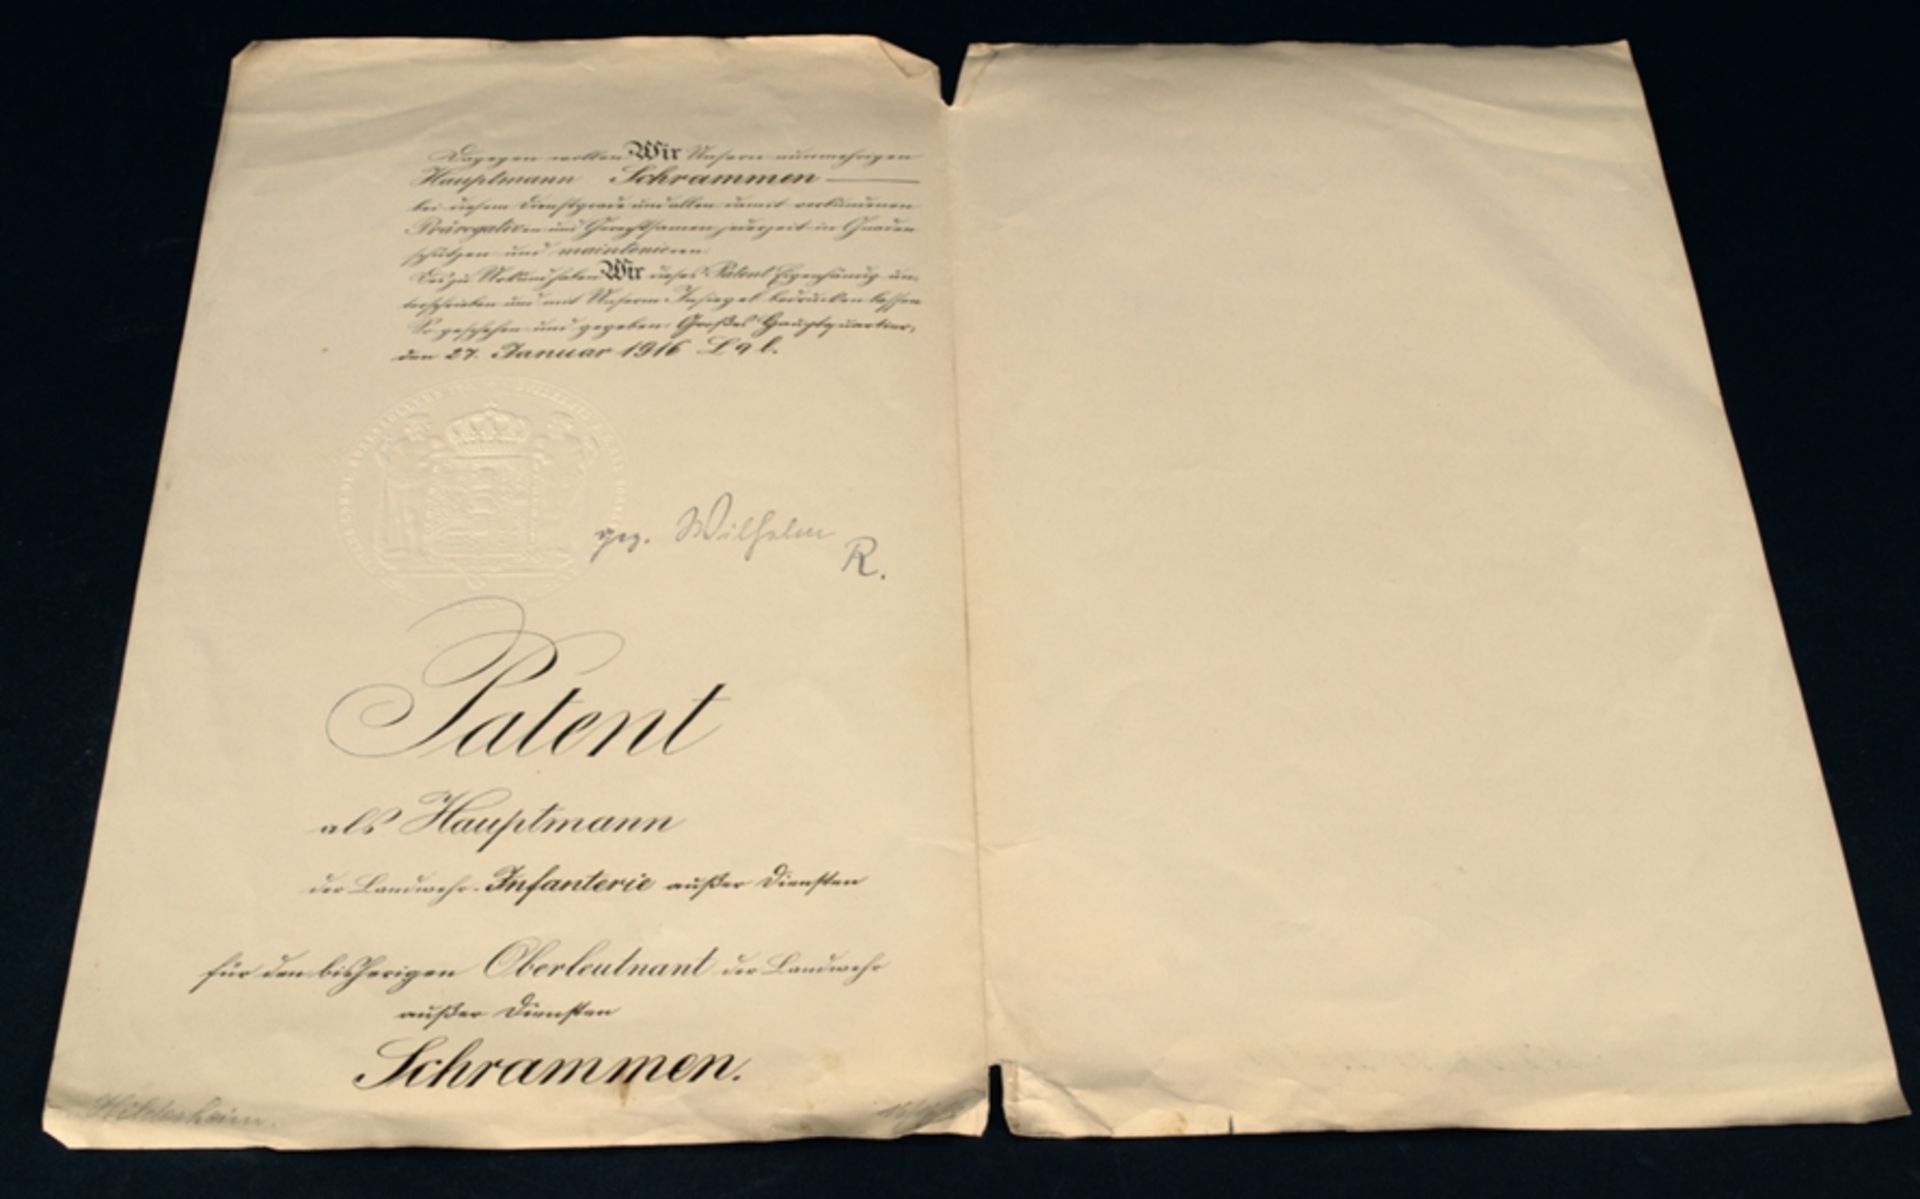 Dagegen wollen Wir Unsern nunmehrigen
Hauptmann Schrammen
bei diesem Dienstgrade und allen damit verbundenen
Prärogativen und Gerechtsamen jederzeit in Gnaden
schützen und mainteniren.
Des zu Urkund haben Wir dieses Patent Eigenhändig un-
terschrieben und mit Unserm Insiegel bedrucken lassen
So geschehen und gegeben Großes Hauptquartier,
den 27. Januar 1916
gez. Wilhelm
R.
Patent
als Hauptmann
der Landwehr-Infanterie außer Diensten
für den bisherigen Oberleutnant der Landwehr
außer Diensten
Schrammen.
Hildesheim.